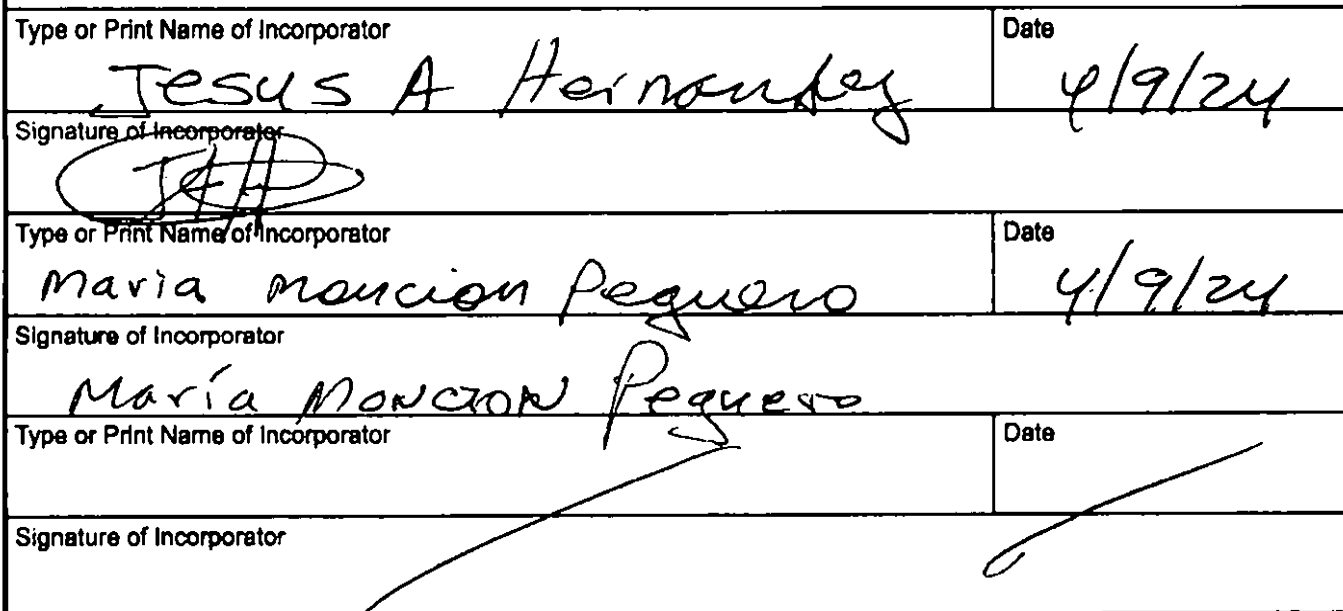 Type or Print Name of Incorporator Date
Jesus A Hernandez 4/9/24
Signature of Incorporator
Type or Print Name of Incorporator Date
Maria Moncion Peguero 4/9/24
Signature of Incorporator
María MONCION Peguero
Type or Print Name of Incorporator Date
Signature of Incorporator